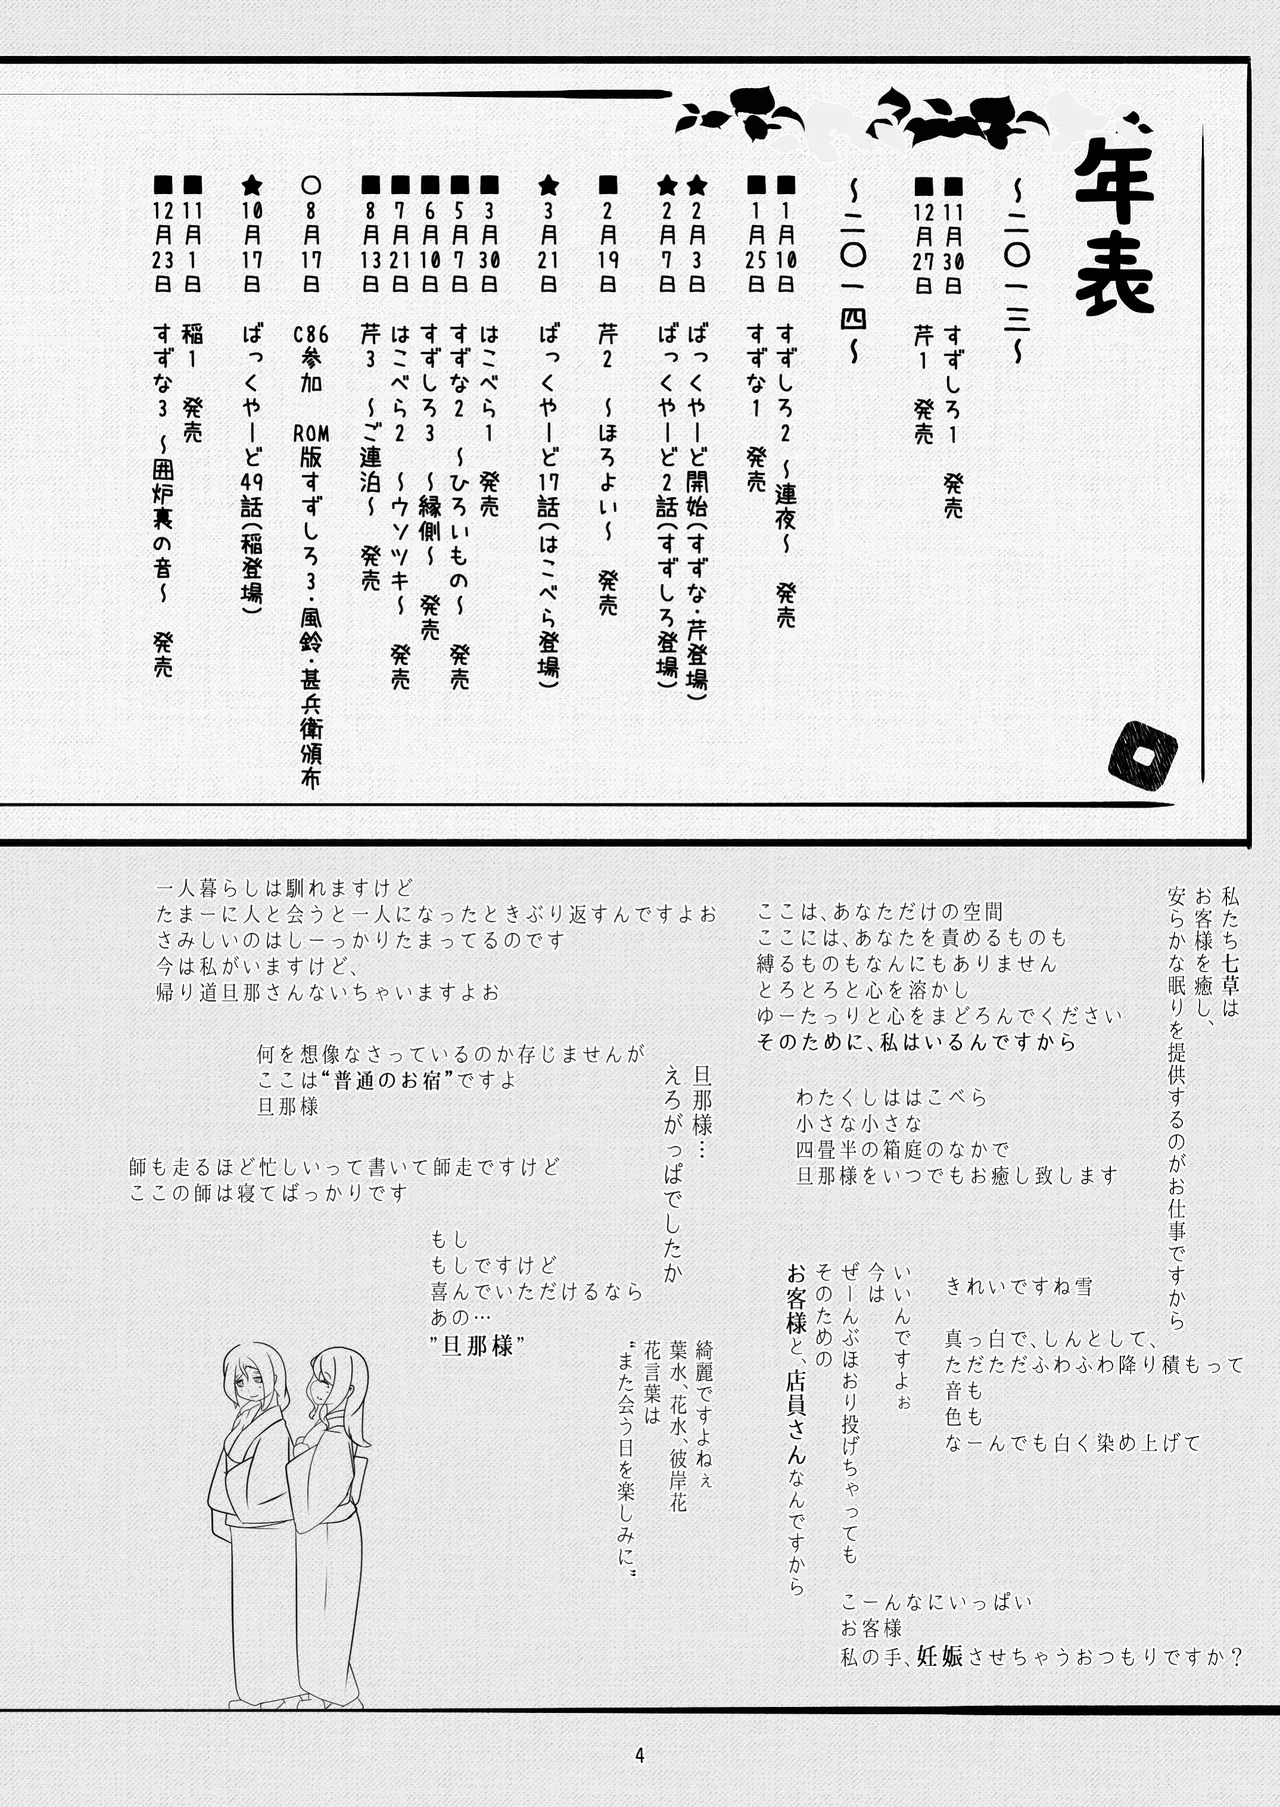 年表
～二〇一三～
■11月30日 すずしろ1 発売
■12月27日 芹1 発売
～二〇一四～
■1月10日 すずしろ2 ～連夜～ 発売
■1月25日 すずな1 発売
★2月3日 ばっくやーど開始(すずな・芹登場)
★2月7日 ばっくやーど2話(すずしろ登場)
■2月19日 芹2 ～ほろよい～ 発売
★3月21日 ばっくやーど17話(はこべら登場)
■3月30日 はこべら1 発売
■5月7日 すずな2 ～ひろいもの～ 発売
■6月10日 すずしろ3 ～縁側～ 発売
■7月21日 はこべら2 ～ウソツキ～ 発売
■8月13日 芹3 ～ご連泊～ 発売
○8月17日 C86参加 ROM版すずしろ3・風鈴・甚兵衛頒布
★10月17日 ばっくやーど49話(稲登場)
■11月1日 稲1 発売
■12月23日 すずな3 ～囲炉裏の音～ 発売
私たち七草は
お客様を癒し、
安らかな眠りを提供するのがお仕事ですから
ここは、あなただけの空間
ここには、あなたを責めるものも
縛るものもなんにもありません
とろとろと心を溶かし
ゆーたっりと心をまどろんでください
そのために、私はいるんですから
一人暮らしは馴れますけど
たまーに人と会うと一人になったときぶり返すんですよお
さみしいのはしーっかりたまってるのです
今は私がいますけど、
帰り道旦那さんないちゃいますよお
何を想像なさっているのか存じませんが
ここは“普通のお宿”ですよ
旦那様
旦那様…
えろがっぱでしたか
わたくしははこべら
小さな小さな
四畳半の箱庭のなかで
旦那様をいつでもお癒し致します
師も走るほど忙しいって書いて師走ですけど
ここの師は寝てばっかりです
もし
もしですけど
喜んでいただけるなら
あの…
”旦那様”
きれいですね雪
真っ白で、しんとして、
ただただふわふわ降り積もって
音も
色も
なーんでも白く染め上げて
いいんですよぉ
今は
ぜーんぶほおり投げちゃっても
そのための
お客様と、店員さんなんですから
綺麗ですよねぇ
葉水、花水、彼岸花
花言葉は
“また会う日を楽しみに”
こーんなにいっぱい
お客様
私の手、妊娠させちゃうおつもりですか？
4